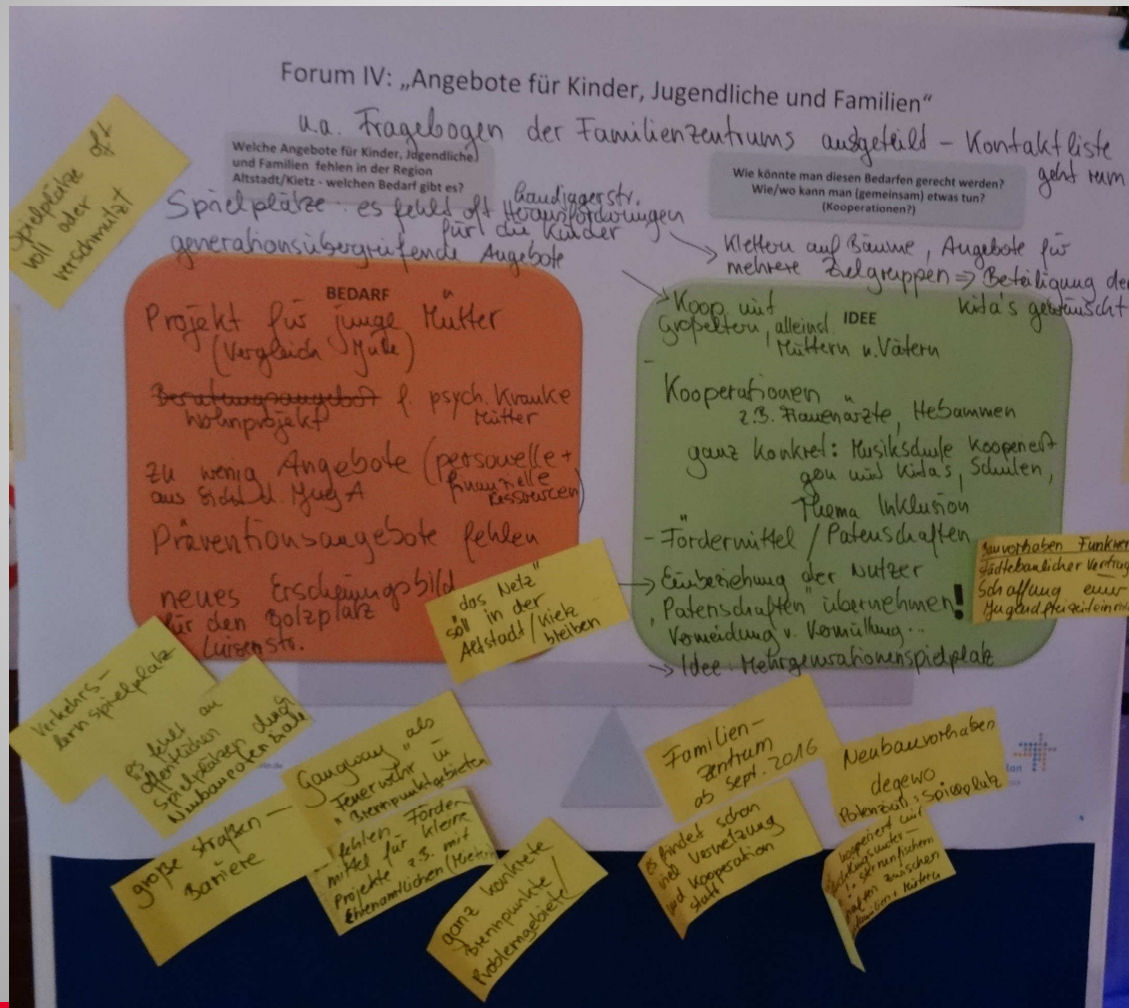 Forum IV: „Angebote für Kinder, Jugendliche und Familien“
u.a. Fragebogen der Familienzentrums ausgeteilt – Kontaktliste
geht rum
Spielplätze oft
voll oder
verschmutzt
Welche Angebote für Kinder, Jugendliche
und Familien fehlen in der Region
Altstadt/Kietz - welchen Bedarf gibt es?
Wie könnte man diesen Bedarfen gerecht werden?
Wie/wo kann man (gemeinsam) etwas tun?
(Kooperationen?)
Spielplätze: es fehlt oft Herausforderungen
für die Kinder
generationsübergreifende Angebote
→ Klettern auf Bäume, Angebote für
mehrere Zielgruppen ⇒ Beteiligung der
Kita's gewünscht
BEDARF
Projekt für junge Mütter
(Vergleich
Wohnprojekt f. psych. Kranke
Mütter
zu wenig Angebote (personelle +
finanzielle
Ressourcen)
aus Sicht d. JugA
Präventionsangebote fehlen
neues Erscheinungsbild
für den Bolzplatz
Luisenstr.
IDEE
Koop. mit
Großeltern, alleinst.
Müttern u. Vätern
Kooperationen
z.B. Frauenärzte, Hebammen
ganz konkret: Musikschule
mit Kitas, Schulen,
Thema Inklusion
- Fördermittel / Patenschaften
→ Einbeziehung der Nutzer
„Patenschaften“ übernehmen!
Vermeidung v. Vermüllung...
→ Idee: Mehrgenerationenspielplatz
"das Netz"
soll in der
Altstadt/Kietz
bleiben
Bauvorhaben
Städtebaulicher Vertrag
Schaffung einer
Verkehrs-
lernspielplatz
es fehlt an
öffentlichen
Spielplätzen durch
Neubaupotenziale
große Straßen –
Barriere
Gangway als
„Feuerwehr“ in
Brennpunktgebieten
- fehlen Förder-
mittel für kleine
Projekte z.B. mit
Ehrenamtlichen
ganz konkrete
Brennpunkte/
Problemgebiete
Familien-
zentrum
ab Sept. 2016
es findet schon
viel Vernetzung
und Kooperation
statt
Neubauvorhaben
degewo
Potenzial: Spielplatz
kooperiert mit
zwischen